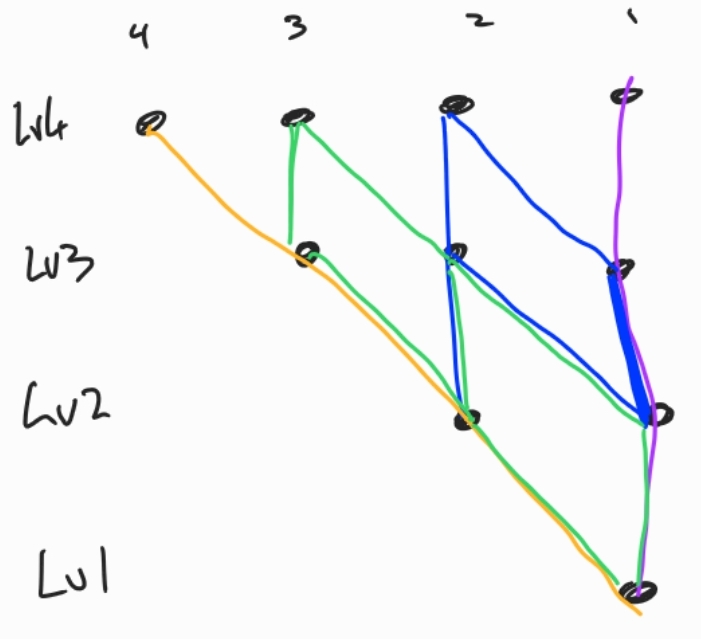 4 3 2 1
Lv4
Lv3
Lv2
Lv1